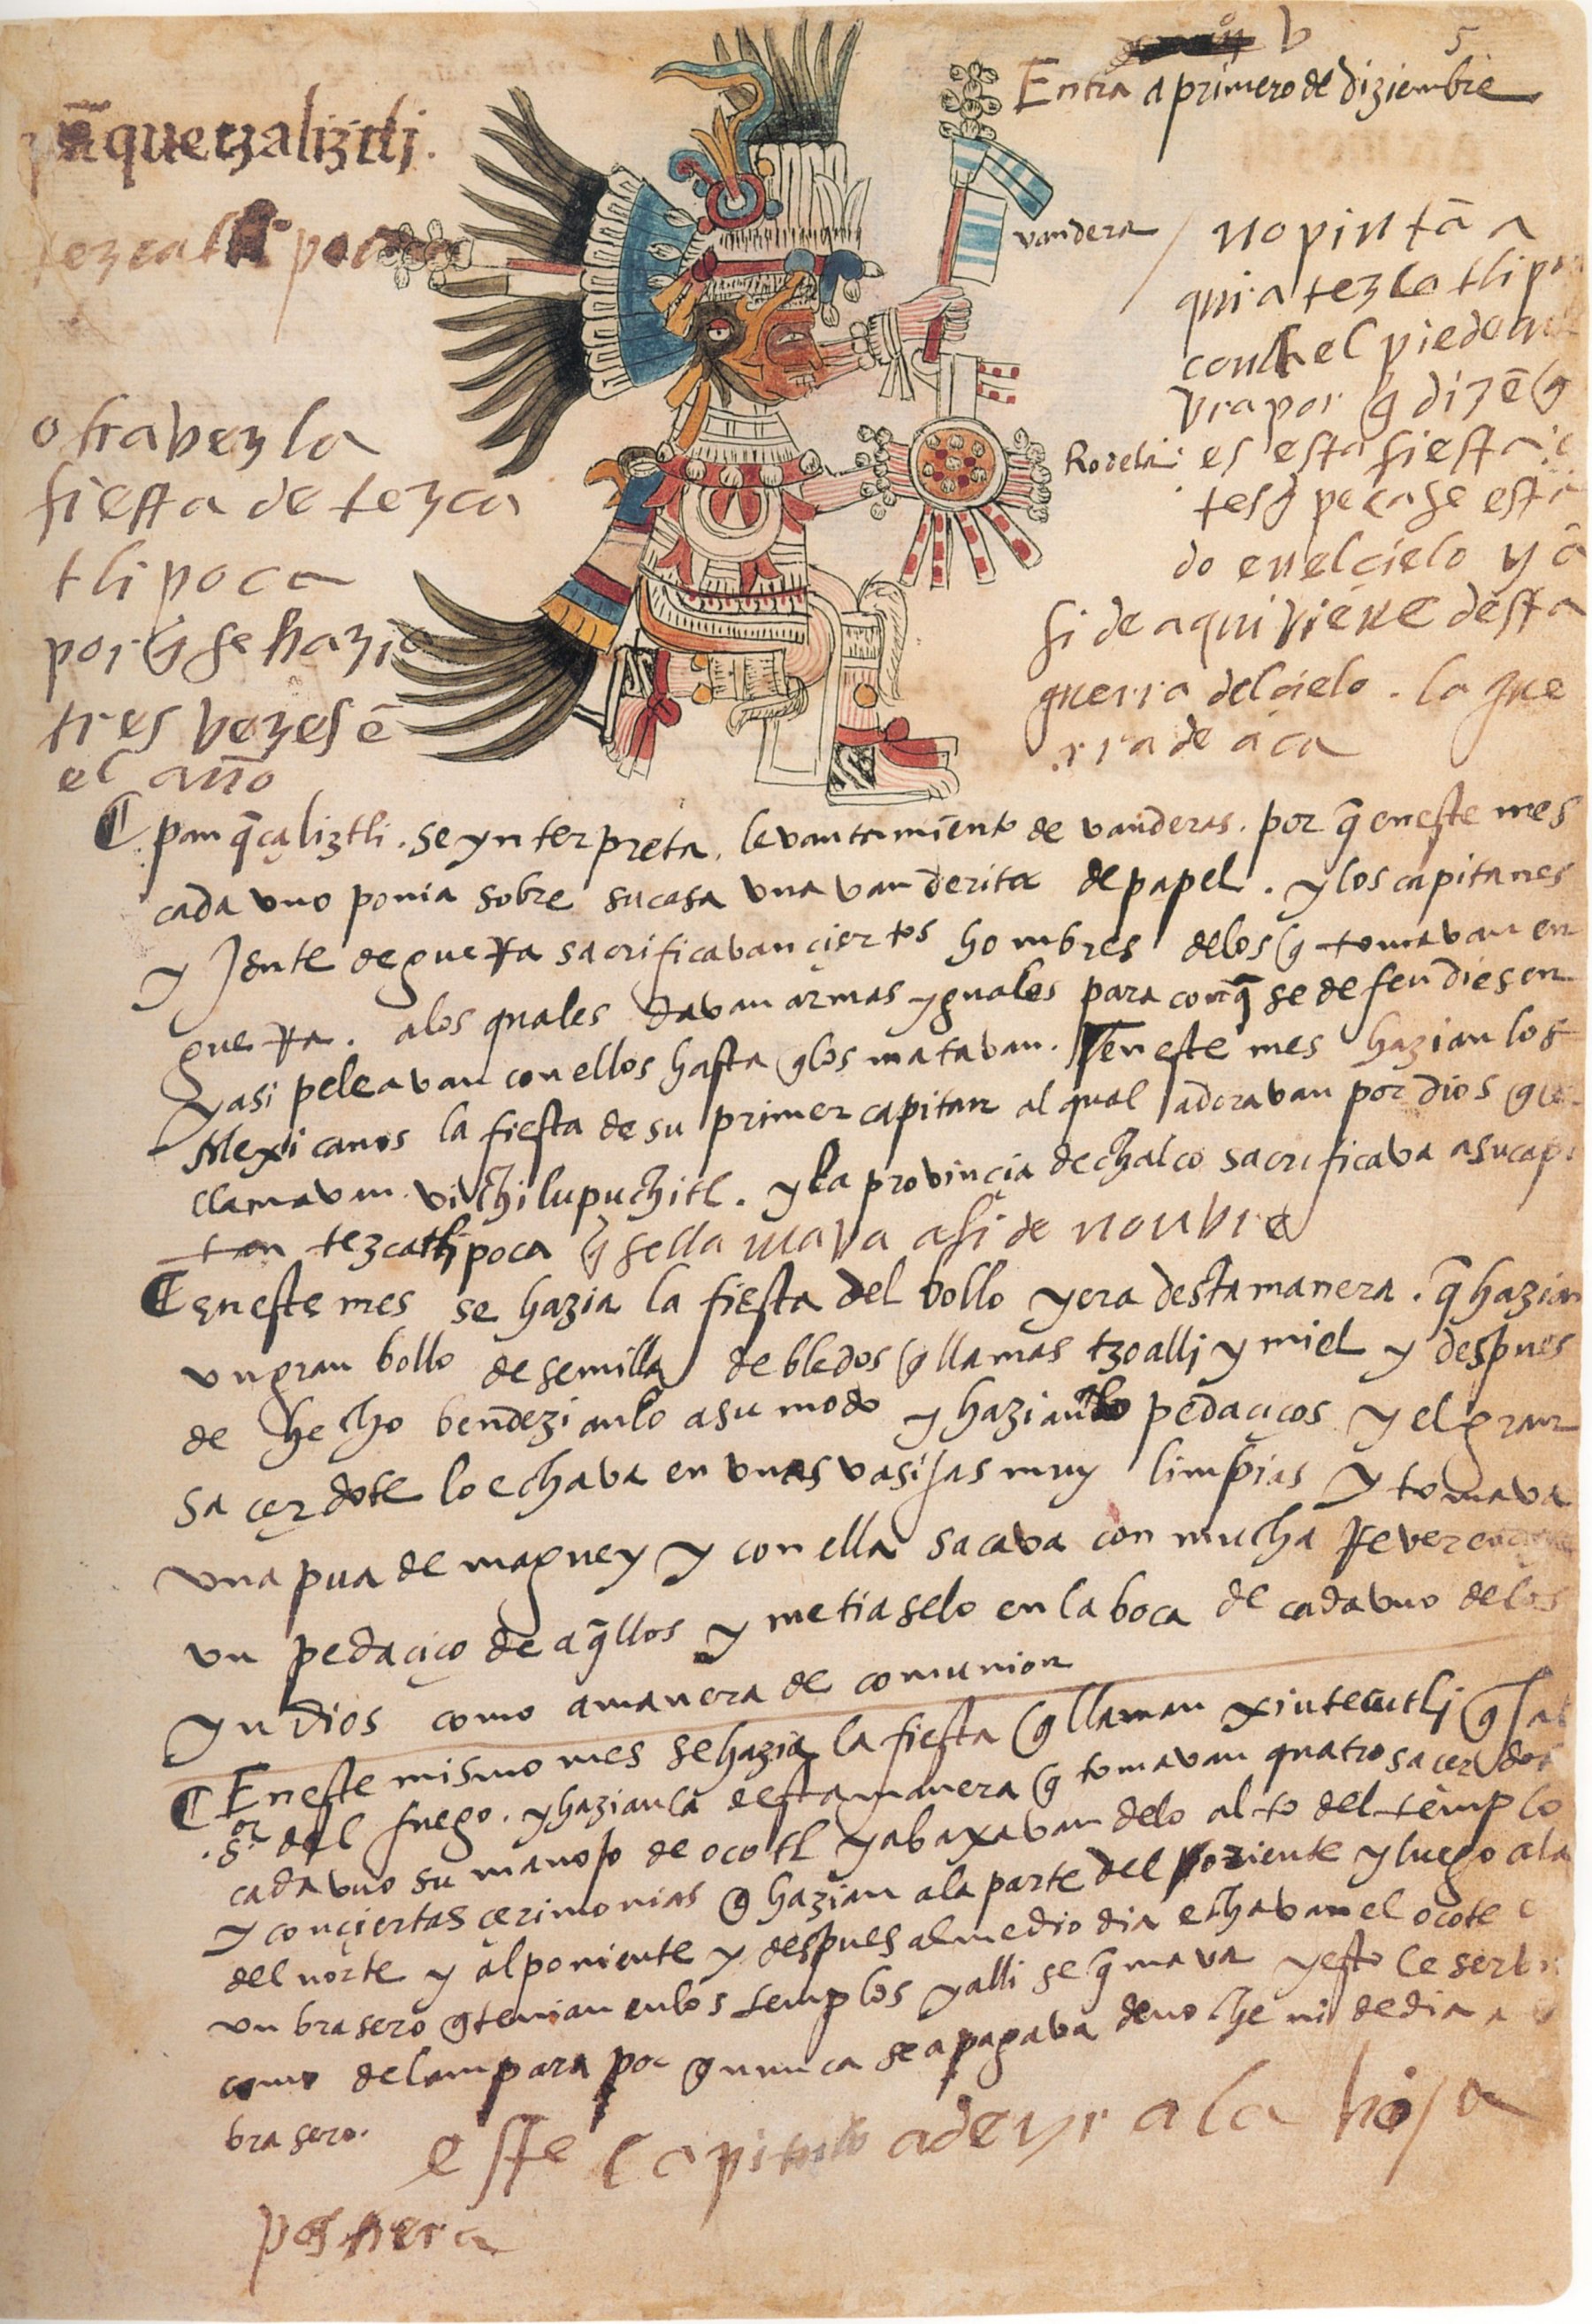 v 5
Entra a primero de diziembre
panquetzaliztli.
tezcatlipoca
vandera
no pintā a
qui a tezcatlipo
con el pie de cu
bra por q̄ dizē q̄
Rodela
es esta fiesta ā
tes q̄ pecase estā
do en el cielo y a
si de aqui viene desta
guerra del cielo . la gue
rra de aca
otra vez la
fiesta de tezca
tlipoca
por q̄ se hazia
tres vezes ē
el año
panq̄çaliztli . se ynterpreta . levantamiento de vanderas . por q̄ en este mes
cada vno ponia sobre su casa vna vanderita de papel . y los capitanes
y jente de guerra sacrificavan çiertos hombres de los q̄ tomavan en
guerra . a los quales davan armas yguales para con q̄ se defendiesen
y asi peleavan con ellos hasta q̄ los matavan . en este mes hazian los
Mexicanos la fiesta de su primer capitan al qual adoravan por dios que
llamavan vitzhilupuchitl . y la provinçia de chalco sacrificava a su capi
tan tezcatlipoca q̄ se llamava asi de nonbre
en este mes se hazia la fiesta del bollo y era desta manera . q̄ hazian
vn gran bollo de semilla de bledos q̄ llamas tzoalli y miel y despues
de hecho bendezianlo a su modo y hazianlo pedaçiços y el gran
saçerdote lo echava en vnas vasijas muy limpias y tomava
vna pua de maguey y con ella sacava con mucha reverençia
vn pedaçiço de aq̄llos y metiaselo en la boca de cada vno de los
yndios como a manera de comunion
En este mismo mes se hazia la fiesta q̄ llaman xiutecutli q̄
s.or del fuego . y hazianla desta manera q̄ tomavan quatro sacerdotes
cada vno su manojo de ocotl y abaxavan de lo alto del templo
y con çiertas çerimonias q̄ hazian a la parte del oriente y luego a la
del norte y al poniente y despues al medio dia echavan el ocote e
vn brasero q̄ tenian en los templos y alli se q̄mava y esto le servi
como de lampara por q̄ nunca se apagava de noche ni de dia
brasero.
este capitulo a de yr a la hoja
postrera